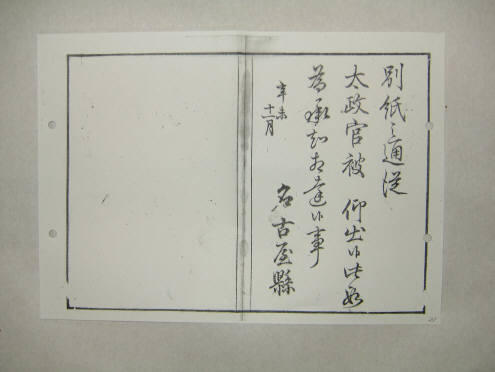 別紙之通従
太政官被 仰出候此段
為承知相達候事
辛未
十一月
名古屋縣